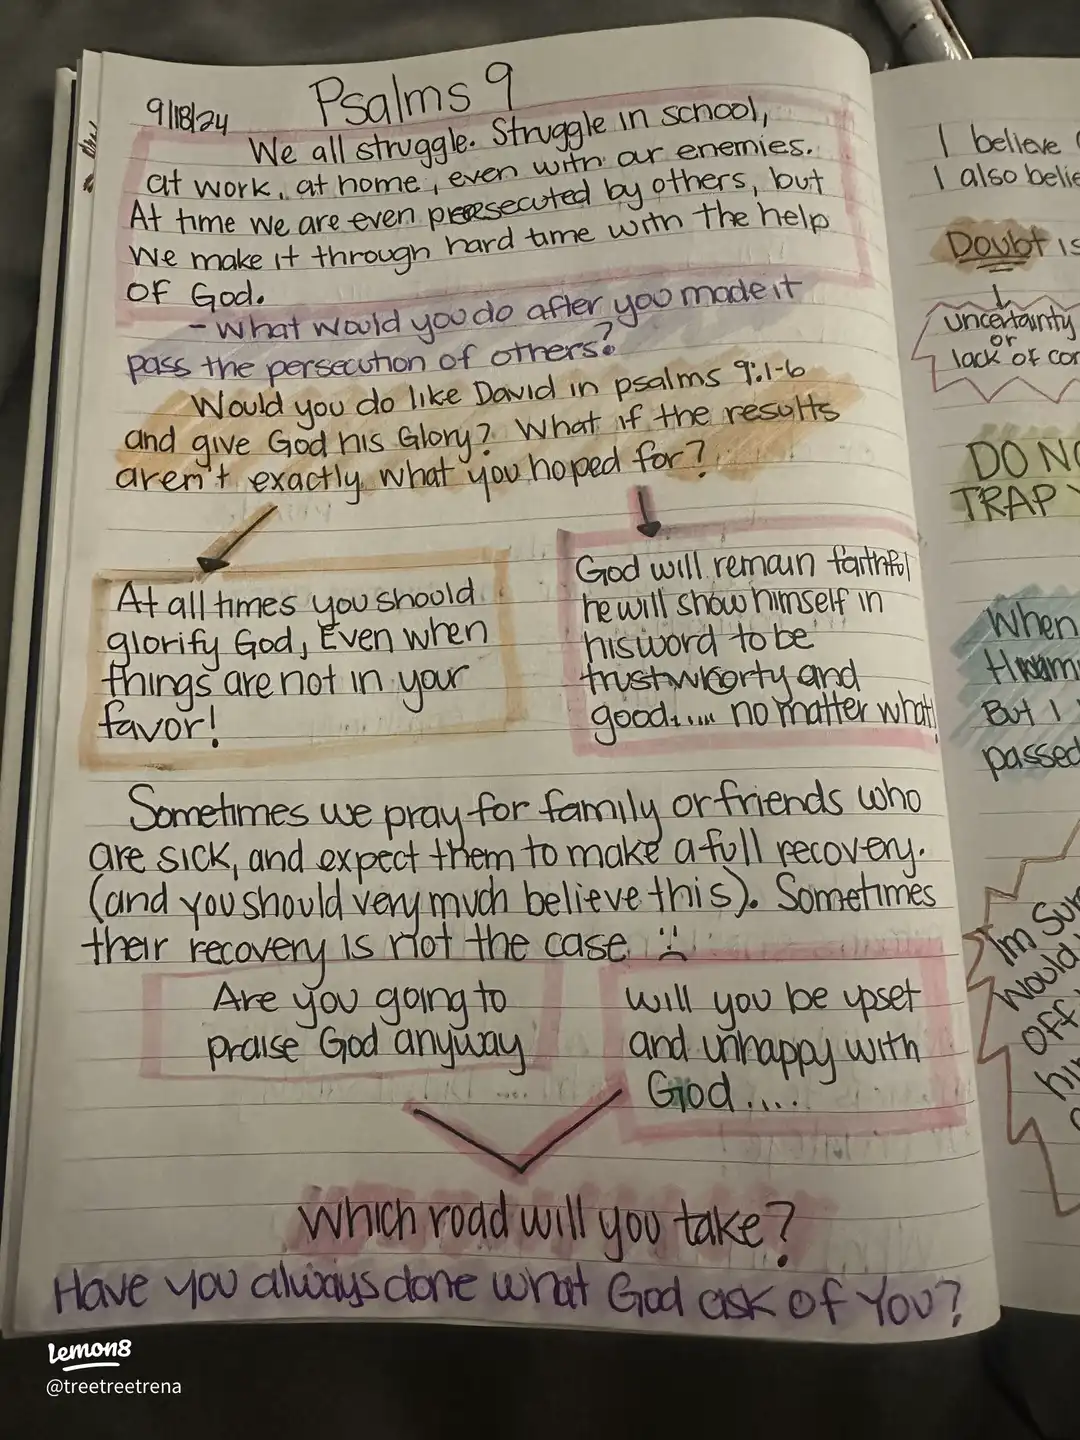 9/18/24
Psalms 9
We all struggle. Struggle in school,
at work, at home, even with our enemies.
At time we are even presecuted by others, but
we make it through hard time with the help
of God.
- What would you do after you made it
pass the persecution of others?
Would you do like David in psalms 9:1-6
and give God his Glory? What if the results
aren't exactly what you hoped for?
At all times you should
glorify God, Even when
things are not in your
favor!
God will remain faithful
he will show himself in
his word to be
trustworty and
good..... no matter what!
Sometimes we pray for family or friends who
are sick, and expect them to make a full recovery.
(and you should very much believe this). Sometimes
their recovery is not the case :(
Are you going to
praise God anyway
will you be upset
and unhappy with
God....
Which road will you take?
Have you always done what God ask of You?
I believe
I also belie
Doubt is
uncertainty
or
lack of cor
DO NO
TRAP
When
But I
passed
Im Sur
Would
off
hi
Lemon8
@treetreetrena